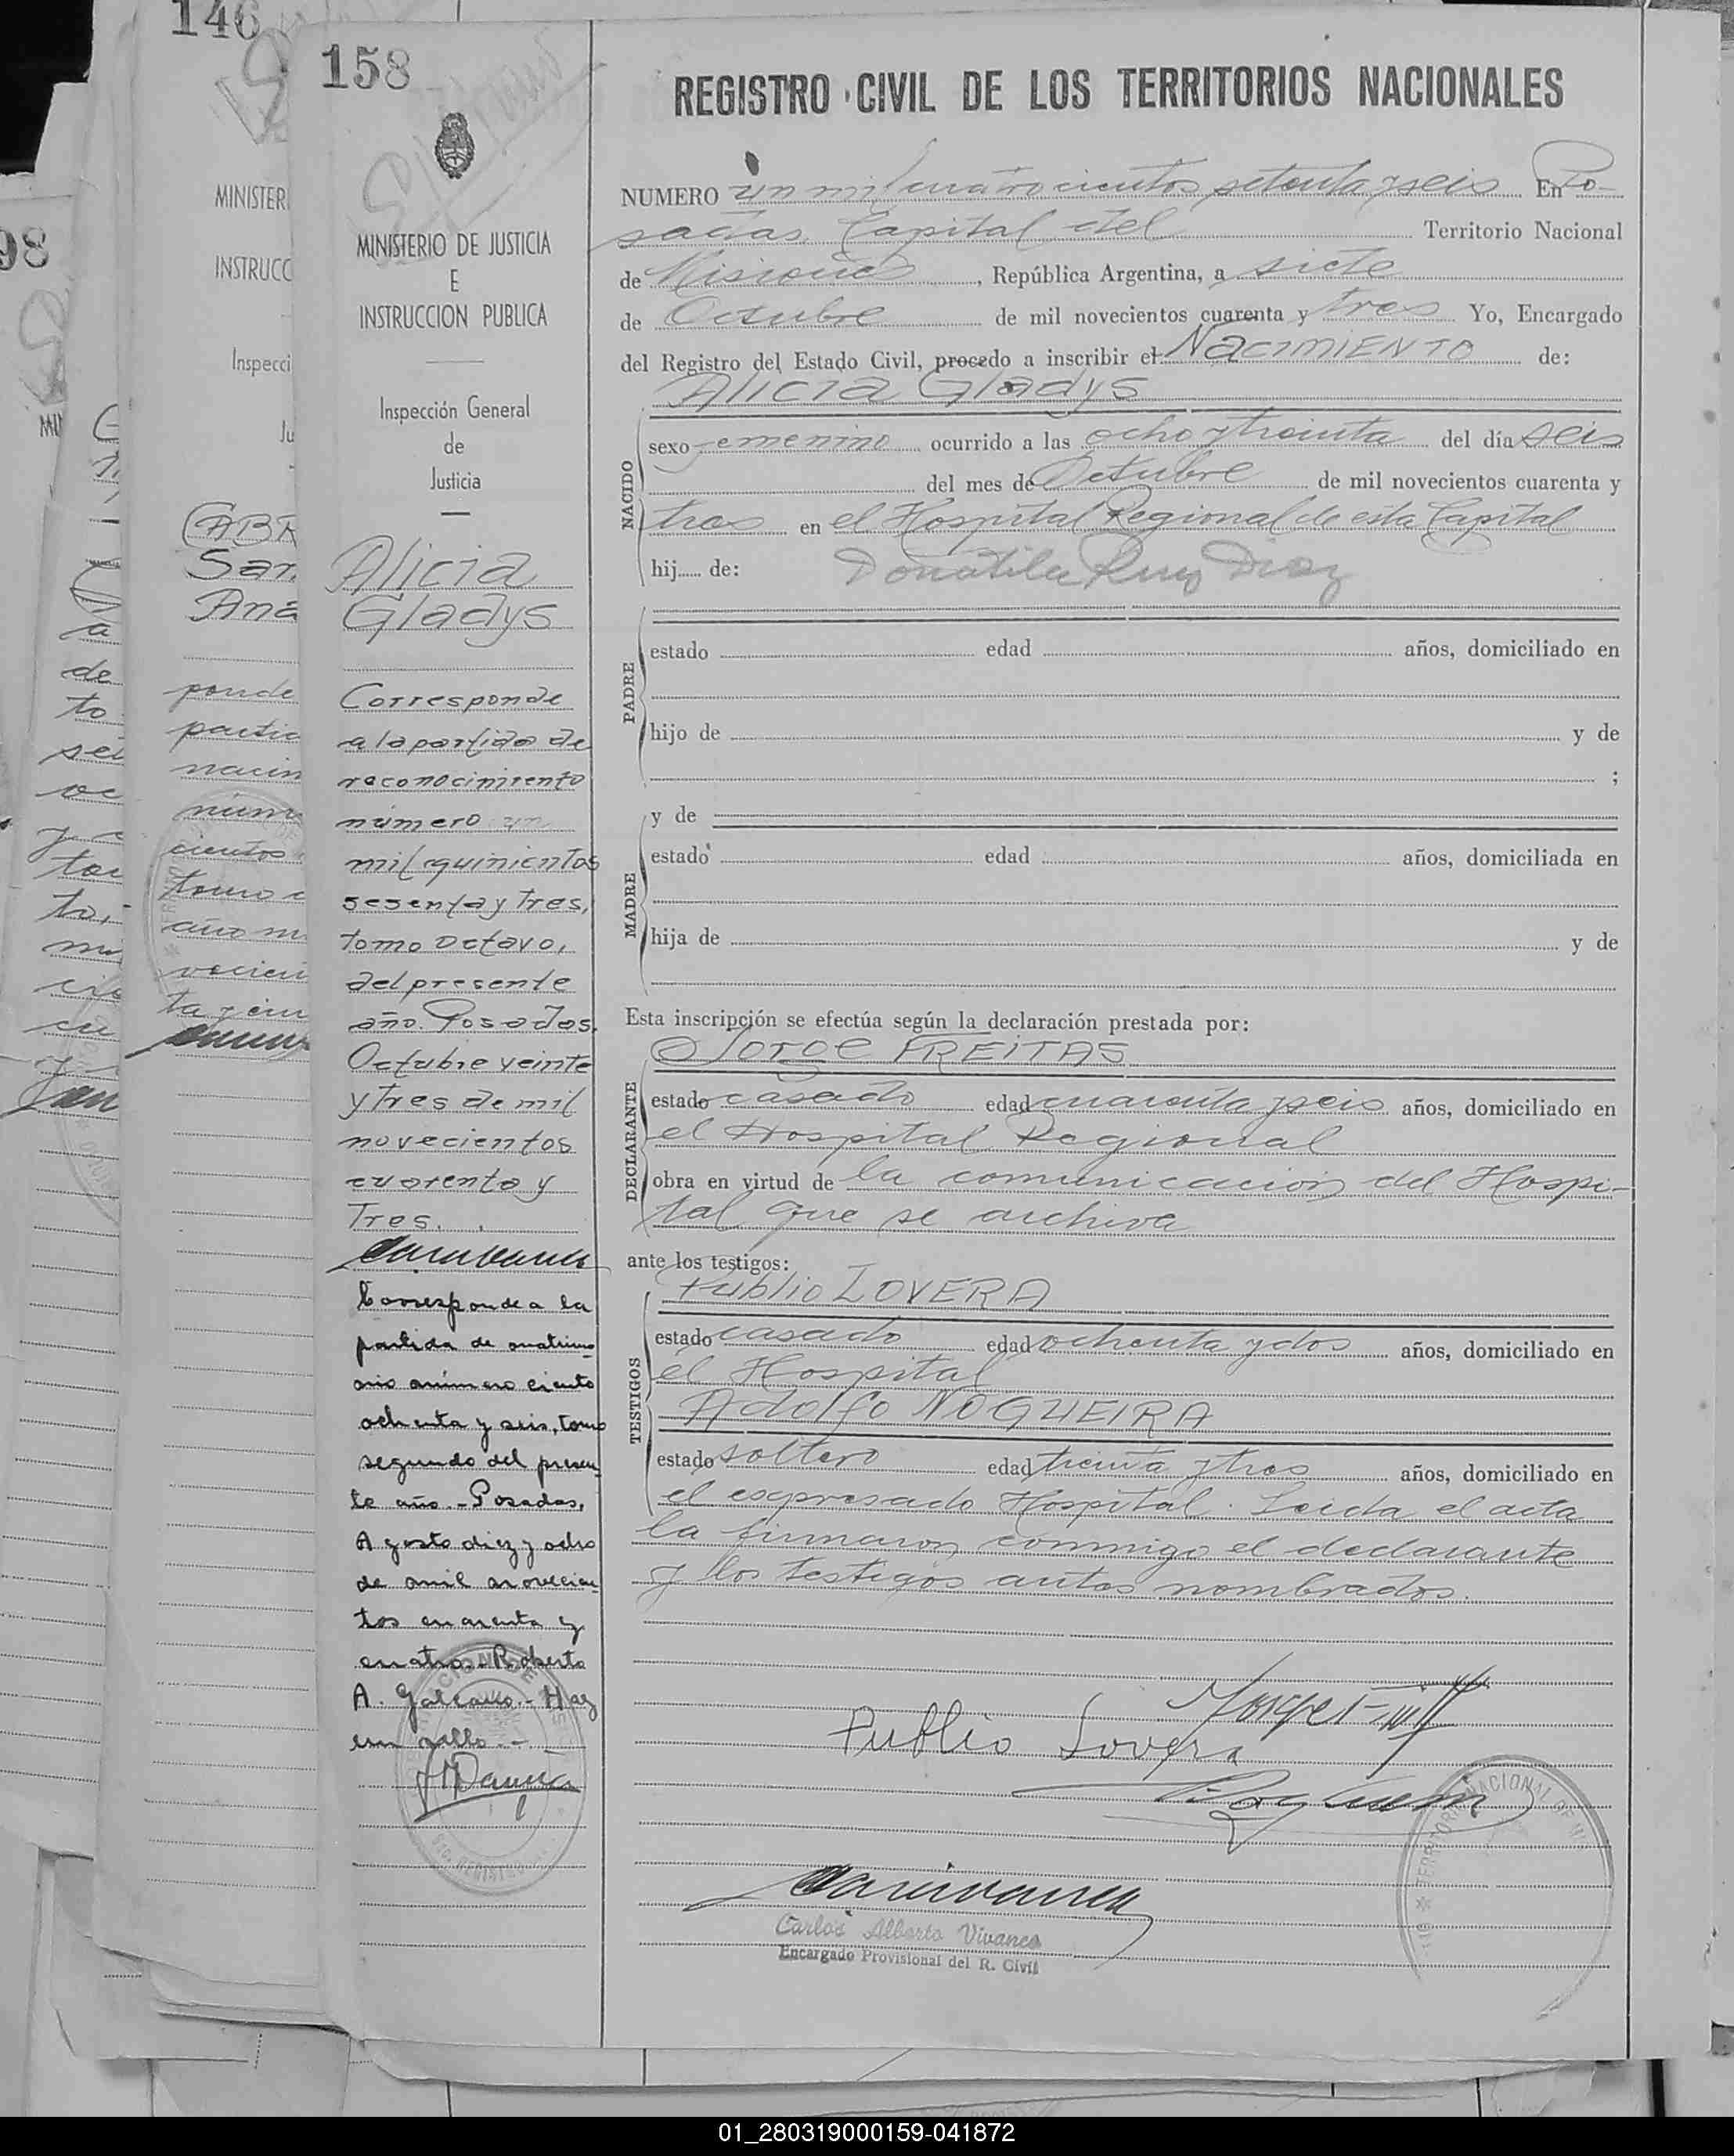 146
158
98
REGISTRO CIVIL DE LOS TERRITORIOS NACIONALES
MINISTERIO DE JUSTICIA
E
INSTRUCCION PUBLICA
Inspección General
de
Justicia
Alicia
Gladys
Corresponde
a la partida de
reconocimiento
número un
mil quinientos
sesenta y tres,
tomo octavo,
del presente
año. Posadas,
Octubre veinte
y tres de mil
novecientos
cuarenta y
Tres.
Corresponde a la
partida de matrimo-
nio número ciento
ochenta y seis, tomo
segundo del presen-
te año.- Posadas,
Agosto diez y ocho
de mil novecien-
tos cuarenta y
cuatro.- Roberto
A. Galeano.- Hay
un sello.-
NUMERO un mil cuatrocientos setenta y seis En Po-
sadas, Capital del Territorio Nacional
de Misiones, República Argentina, a siete
de Octubre de mil novecientos cuarenta y tres Yo, Encargado
del Registro del Estado Civil, procedo a inscribir el NACIMIENTO de:
Alicia Gladys
NACIDO
sexo femenino ocurrido a las ocho y treinta del día seis
del mes de Octubre de mil novecientos cuarenta y
tres en el Hospital Regional de esta Capital
hij...... de: Donatila Ruiz Diaz
PADRE
estado edad años, domiciliado en
hijo de y de
;
y de
MADRE
estado edad años, domiciliada en
hija de y de
Esta inscripción se efectúa según la declaración prestada por:
Jorge FREITAS
DECLARANTE
estado casado edad cuarenta y seis años, domiciliado en
el Hospital Regional
obra en virtud de la comunicación del Hospi-
tal que se archiva
ante los testigos:
Publio LOVERA
TESTIGOS
estado casado edad ochenta y dos años, domiciliado en
el Hospital
Adolfo NOGUEIRA
estado soltero edad treinta y tres años, domiciliado en
el expresado Hospital. Leida el acta
la firmaron conmigo el declarante
y los testigos antes nombrados.
Publio Lovera
Carlos Alberto Vivanco
Encargado Provisional del R. Civil
01_280319000159-041872